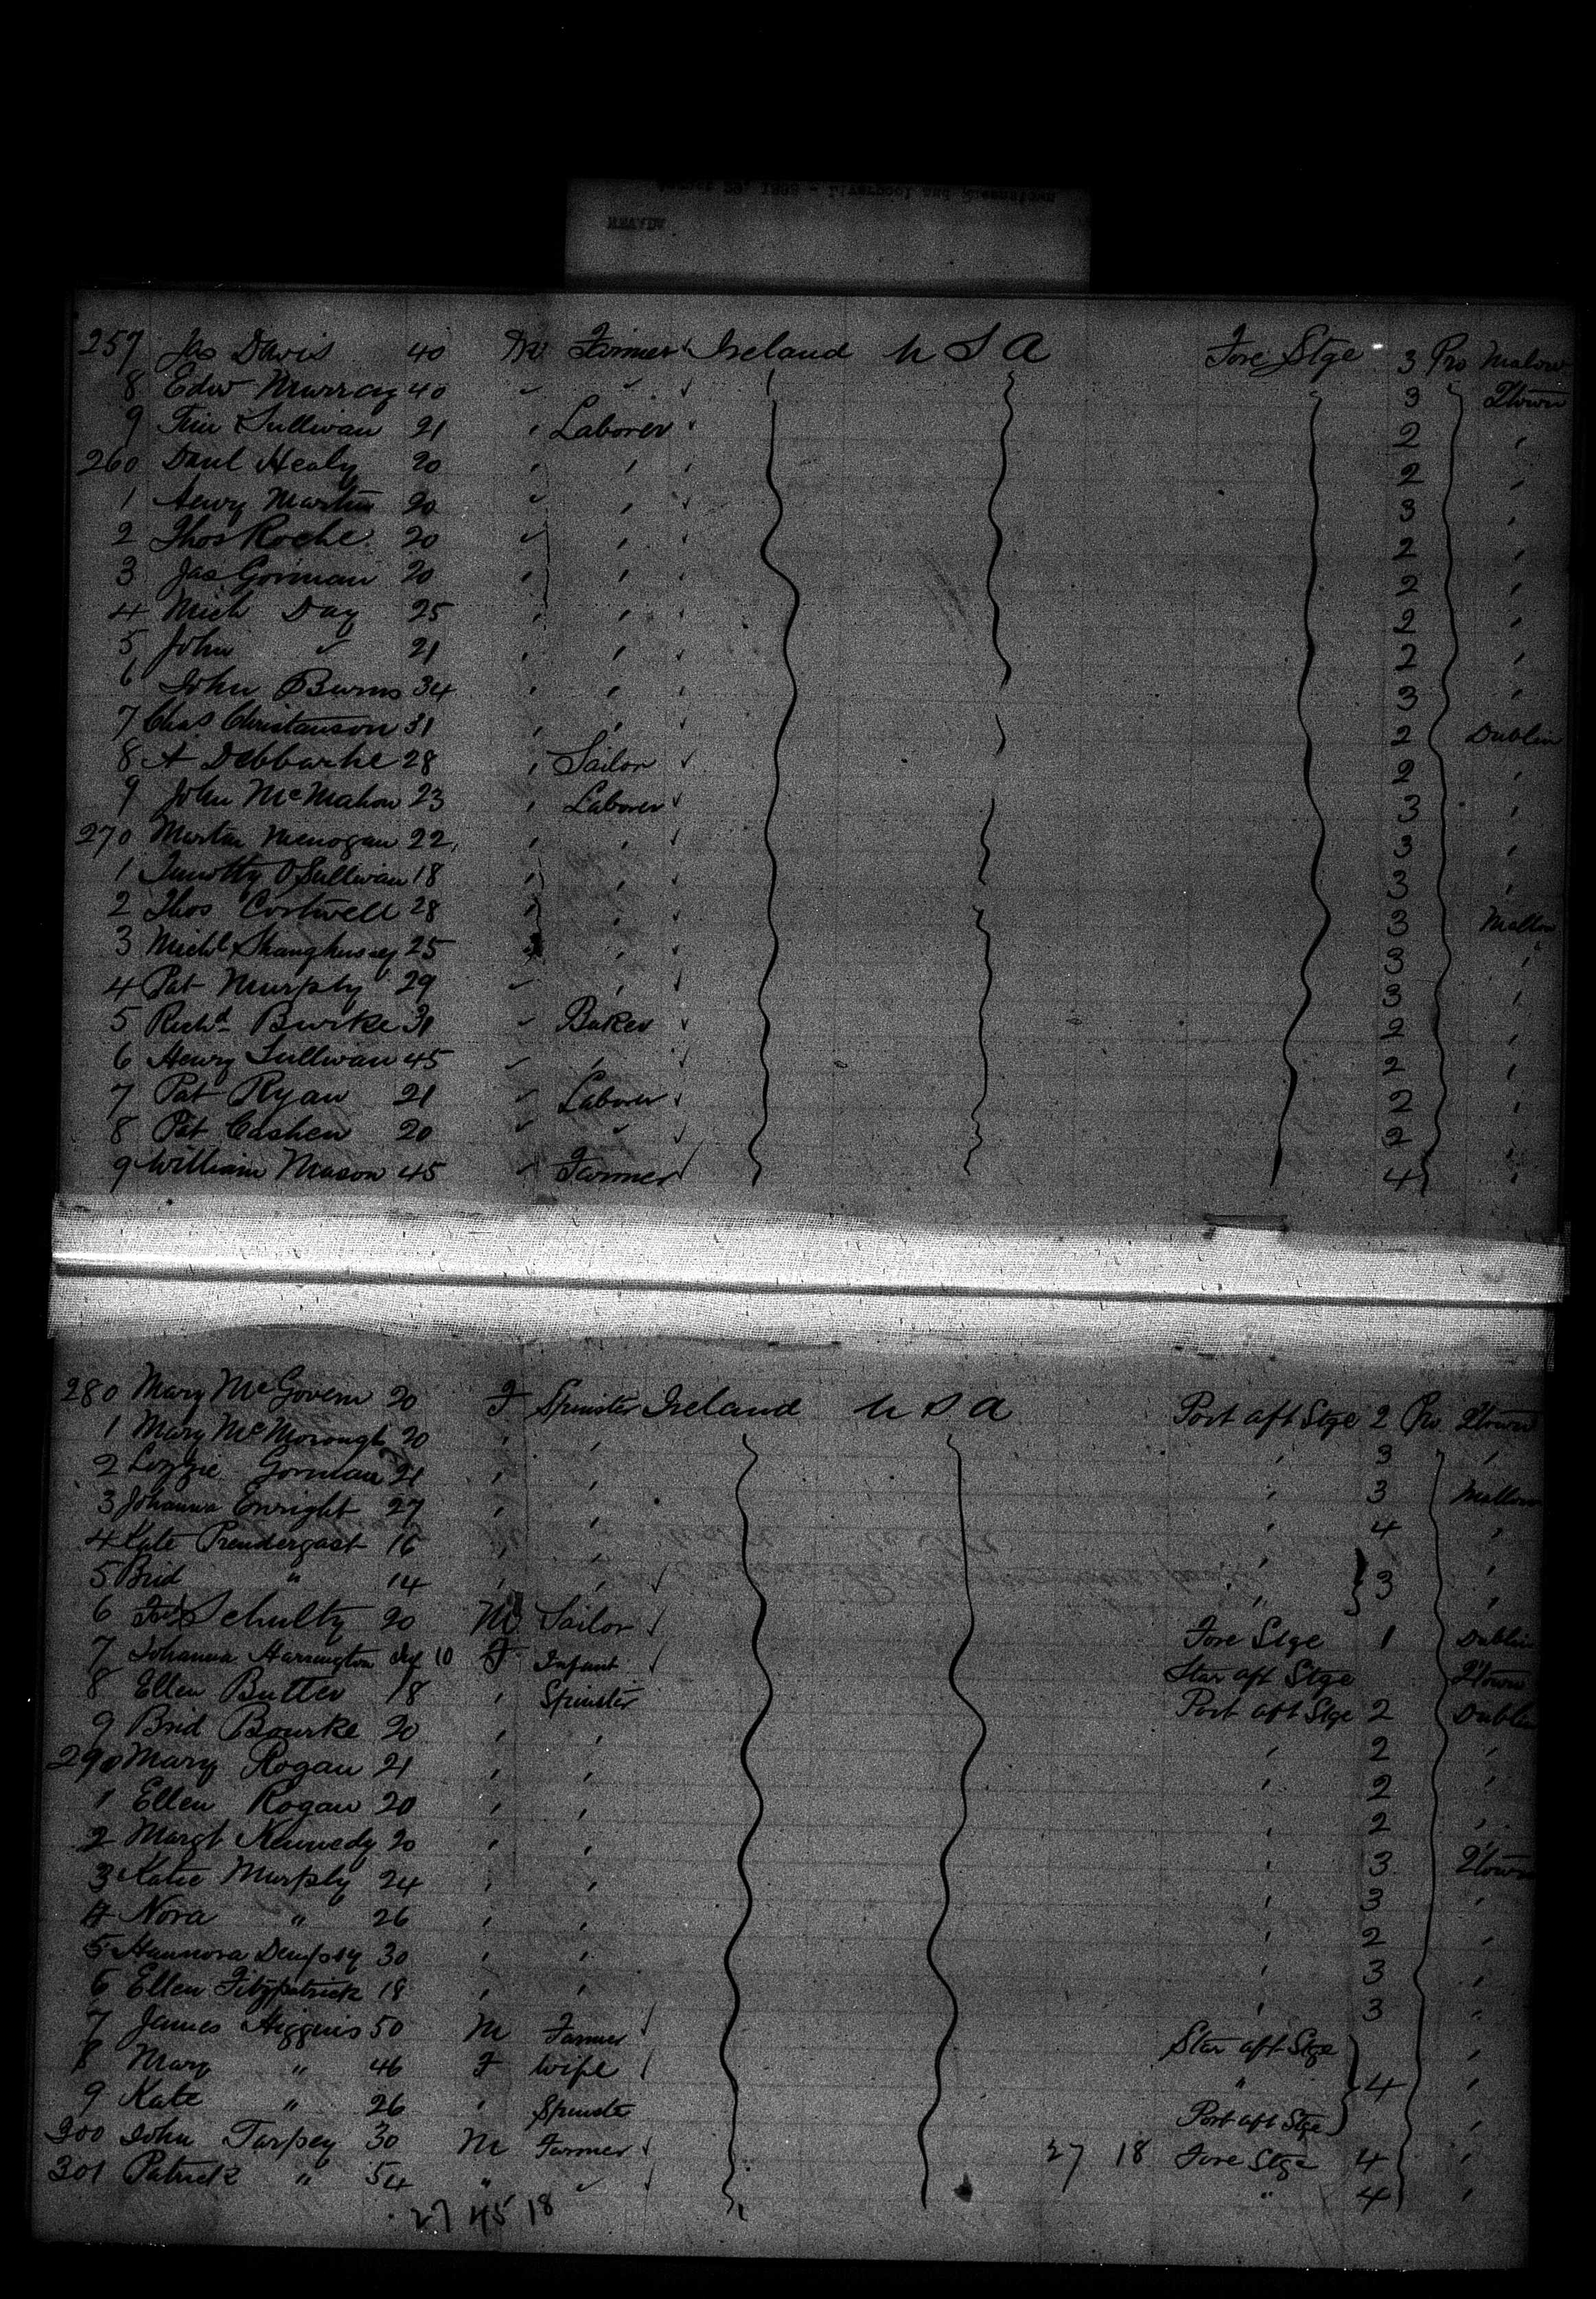 257 Jas Davis 40 M Farmer Ireland U S A Fore Stge 3 Pro Malow
8 Edw Murray 40 " " 3 Qtown
9 Tim Sullivan 21 " Laborer 2 "
260 Danl Healy 20 " " 2 "
1 Henry Martin 20 " " 3 "
2 Thos Roche 20 " " 2 "
3 Jas Gorman 20 " " 2 "
4 Mich Day 25 " " 2 "
5 John " 21 " " 2 "
6 John Burns 34 " " 3 "
7 Chas Christanson 31 " " 2 Dublin
8 A 28 " Sailor 2 "
9 John McMahon 23 " Laborer 3 "
270 Martin Menogan 22 " " 3 "
1 Timothy O'Sullivan 18 " " 3 "
2 Thos 28 " " 3 Mallow
3 Michl 25 " " 3 "
4 Pat Murphy 29 " " 3 "
5 Richd Burke 31 " Baker 2 "
6 Henry Sullivan 45 " " 2 "
7 Pat Ryan 21 " Laborer 2 "
8 Pat Cashen 20 " " 2 "
9 William Mason 45 " Farmer 4 "
280 Mary McGovern 20 F Spinster Ireland U S A Port aft Stge 2 Pro Qtown
1 Mary McMorough 20 " " " 3 "
2 Lizzie Gorman 21 " " " 3 Mallow
3 Johanna Enright 27 " " " 4 "
4 Kate Prendergast 16 " " " "
5 Brid " 14 " " " 3 "
6 Schultz 20 M Sailor Fore Stge 1 Dublin
7 Johanna Harrington 10 F Infant Star aft Stge Qtown
8 Ellen Butler 18 " Spinster Port aft Stge 2 Dublin
9 Brid Bourke 20 " " " 2 "
290 Mary Rogan 21 " " " 2 "
1 Ellen Rogan 20 " " " 2 "
2 Margt Kennedy 20 " " " 3 Qtown
3 Katie Murphy 24 " " " 3 "
4 Nora " 26 " " " 2 "
5 Hannora Dempsey 30 " " " 3 "
6 Ellen Fitzpatrick 18 " " " 3 "
7 James Higgins 50 M Farmer Star aft Stge "
8 Mary " 46 F Wife " 4 "
9 Kate " 26 " Spinster Port aft Stge "
300 John Tarpey 30 M Farmer 27 18 Fore Stge 4 "
301 Patrick " 54 " " " 4 "
27 45 18